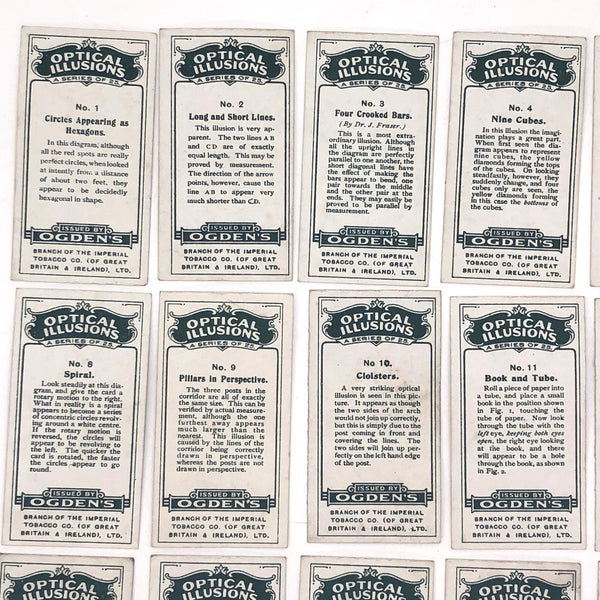 OPTICAL
ILLUSIONS
A SERIES OF 25.
No. 1
Circles Appearing as
Hexagons.
In this diagram, although
all the red spots are really
perfect circles, when looked
at intently from a distance
of about two feet, they
appear to be decidedly
hexagonal in shape.
ISSUED BY
OGDEN'S
BRANCH OF THE IMPERIAL
TOBACCO CO. (OF GREAT
BRITAIN & IRELAND), LTD.
OPTICAL
ILLUSIONS
A SERIES OF 25.
No. 2
Long and Short Lines.
This illusion is very ap-
parent. The two lines A B
and C D are of exactly
equal length. This may be
proved by measurement.
The direction of the arrow
points, however, cause the
line AB to appear very
much shorter than C.D.
ISSUED BY
OGDEN'S
BRANCH OF THE IMPERIAL
TOBACCO CO. (OF GREAT
BRITAIN & IRELAND), LTD.
OPTICAL
ILLUSIONS
A SERIES OF 25.
No. 3
Four Crooked Bars.
(By Dr. J. Fraser.)
This is a most extra-
ordinary illusion. Although
all the upright lines in
the diagram are perfectly
parallel to one another, the
short diagonal lines have
the effect of making the
bars appear to bend, one
pair towards the middle
and the other pair at the
ends. They may easily be
proved to be parallel by
measurement.
ISSUED BY
OGDEN'S
BRANCH OF THE IMPERIAL
TOBACCO CO. (OF GREAT
BRITAIN & IRELAND), LTD.
OPTICAL
ILLUSIONS
A SERIES OF 25.
No. 4
Nine Cubes.
In this illusion the imagi-
nation plays a great part.
When first seen the dia-
gram appears to represent
nine cubes, the yellow
diamonds forming the tops
of the cubes. On looking
steadfastly, however, they
suddenly change, and four
cubes only are seen, the
yellow diamonds forming
in this case the bottoms of
the cubes.
ISSUED BY
OGDEN'S
BRANCH OF THE IMPERIAL
TOBACCO CO. (OF GREAT
BRITAIN & IRELAND), LTD.
OPTICAL
ILLUSIONS
A SERIES OF 25.
No. 8
Spiral.
Look steadily at this dia-
gram, and give the card a
rotary motion to the right.
What in reality is a spiral
appears to become a series
of concentric circles revolv-
ing around a white centre.
If the rotary motion is
reversed, the circles will
appear to be revolving to
the left. The quicker the
card is rotated, the faster
the circles appear to go
round.
ISSUED BY
OGDEN'S
BRANCH OF THE IMPERIAL
TOBACCO CO. (OF GREAT
BRITAIN & IRELAND), LTD.
OPTICAL
ILLUSIONS
A SERIES OF 25.
No. 9
Pillars in Perspective.
The three posts in the
corridor are all of exactly
the same size. This can be
verified by actual measure-
ment, although the one
furthest away appears
much larger than the
nearest. This illusion is
caused by the lines of the
corridor being correctly
drawn in perspective,
whereas the posts are not
drawn in perspective.
ISSUED BY
OGDEN'S
BRANCH OF THE IMPERIAL
TOBACCO CO. (OF GREAT
BRITAIN & IRELAND), LTD.
OPTICAL
ILLUSIONS
A SERIES OF 25.
No 10.
Cloisters.
A very striking optical
illusion is seen in this pic-
ture. It appears as though
the two sides of the arch
would not join up correctly,
but this is simply due to the
post coming in front and
covering the lines. The
two sides will join up per-
fectly on the left hand edge
of the post.
ISSUED BY
OGDEN'S
BRANCH OF THE IMPERIAL
TOBACCO CO. (OF GREAT
BRITAIN & IRELAND), LTD.
OPTICAL
ILLUSIONS
A SERIES OF 25.
No. 11
Book and Tube.
Roll a piece of paper into
a tube, and place a small
book in the position shown
in Fig. 1, touching the
tube of paper. Now look
through the tube with the
left eye, keeping both eyes
open, the right eye looking
at the book, and there
will appear to be a hole
through the book, as shown
in Fig. 2.
ISSUED BY
OGDEN'S
BRANCH OF THE IMPERIAL
TOBACCO CO. (OF GREAT
BRITAIN & IRELAND), LTD.
OPTICAL
ILLUSIONS
OPTICAL
ILLUSIONS
OPTICAL
ILLUSIONS
OPTICAL
ILLUSIONS